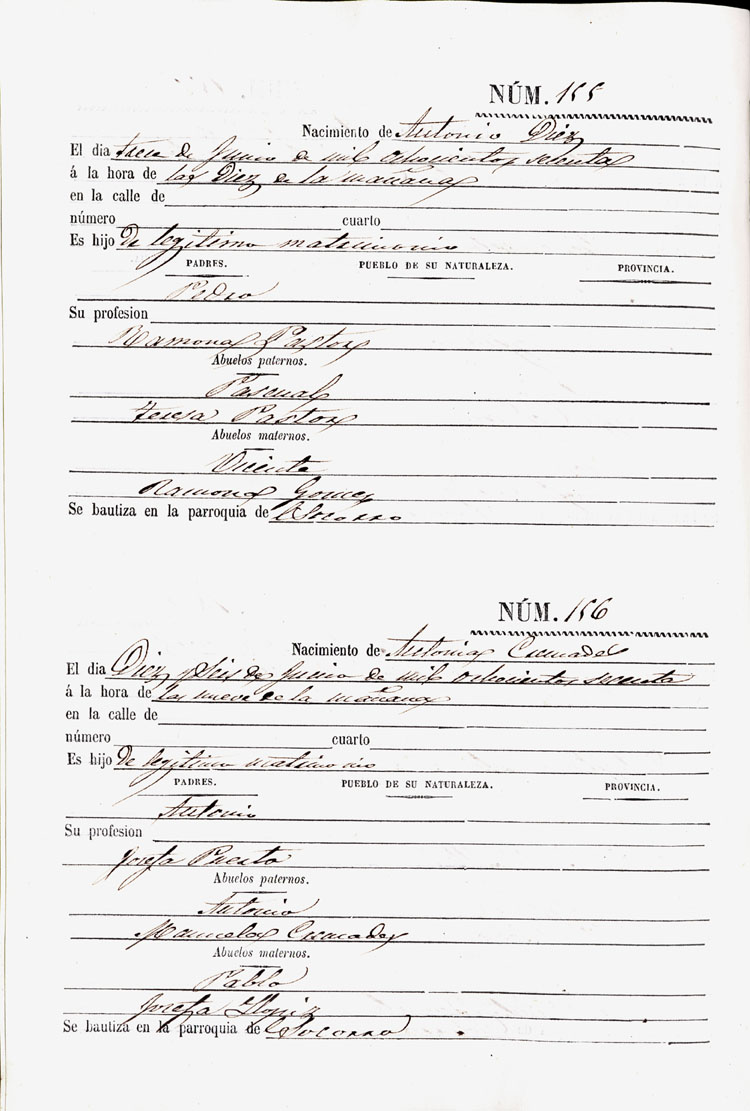 NÚM. 155
Nacimiento de Antonio Diez
El dia trece de Junio de mil ochocientos sesenta
á la hora de las Diez de la mañana
en la calle de
número cuarto
Es hijo de legitimo matrimonio
PADRES. PUEBLO DE SU NATURALEZA. PROVINCIA.
Pedro
Su profesion
Ramona Pastor
Abuelos paternos.
Pascual
Teresa Pastor
Abuelos maternos.
Vicente
Ramona Gomez
Se bautiza en la parroquia de Socorro
NÚM. 156
Nacimiento de Antonia Cremades
El dia Diez y Seis de Junio de mil ochocientos sesenta
á la hora de las nueve de la mañana
en la calle de
número cuarto
Es hijo de legitimo matrimonio
PADRES. PUEBLO DE SU NATURALEZA. PROVINCIA.
Antonio
Su profesion
Josefa Puerto
Abuelos paternos.
Antonio
Manuela Cremades
Abuelos maternos.
Pablo
Josefa
Se bautiza en la parroquia de Socorro